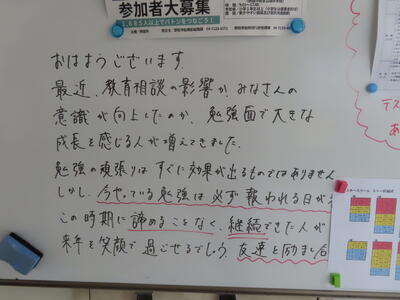 参加者大募集
1,685人以上でバトンをつなごう！
おはようございます。
最近、教育相談の影響か、みなさんの
意識が向上したのか、勉強面で大きな
成長を感じる人が増えてきました。
勉強の頑張りはすぐに効果が出るものではありません
しかし、今やっている勉強は必ず報われる日が
この時期に諦めることなく、継続できた人が
来年を笑顔で過ごせるでしょう。友達と励まし合
テス
あ